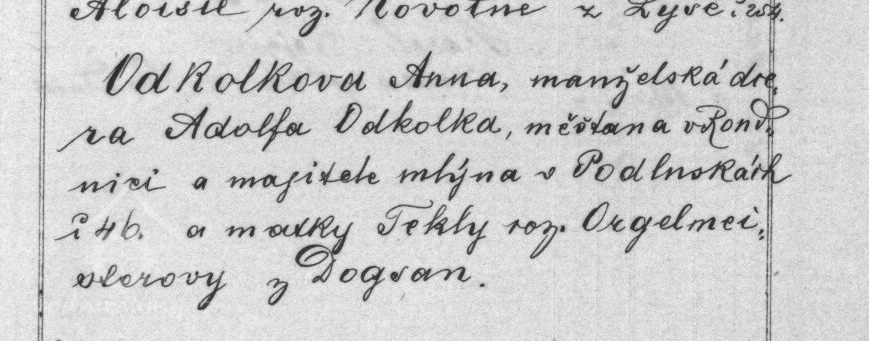 Aloisie roz. Novotné z Lysé č. 254.
Odkolkova Anna, manželská dce,
ra Adolfa Odkolka, měšťana v Roud,
nici a majitele mlýna v Podluskách
č 46. a matky Tekly roz. Orgelmei,
sterovy z Dogsan.